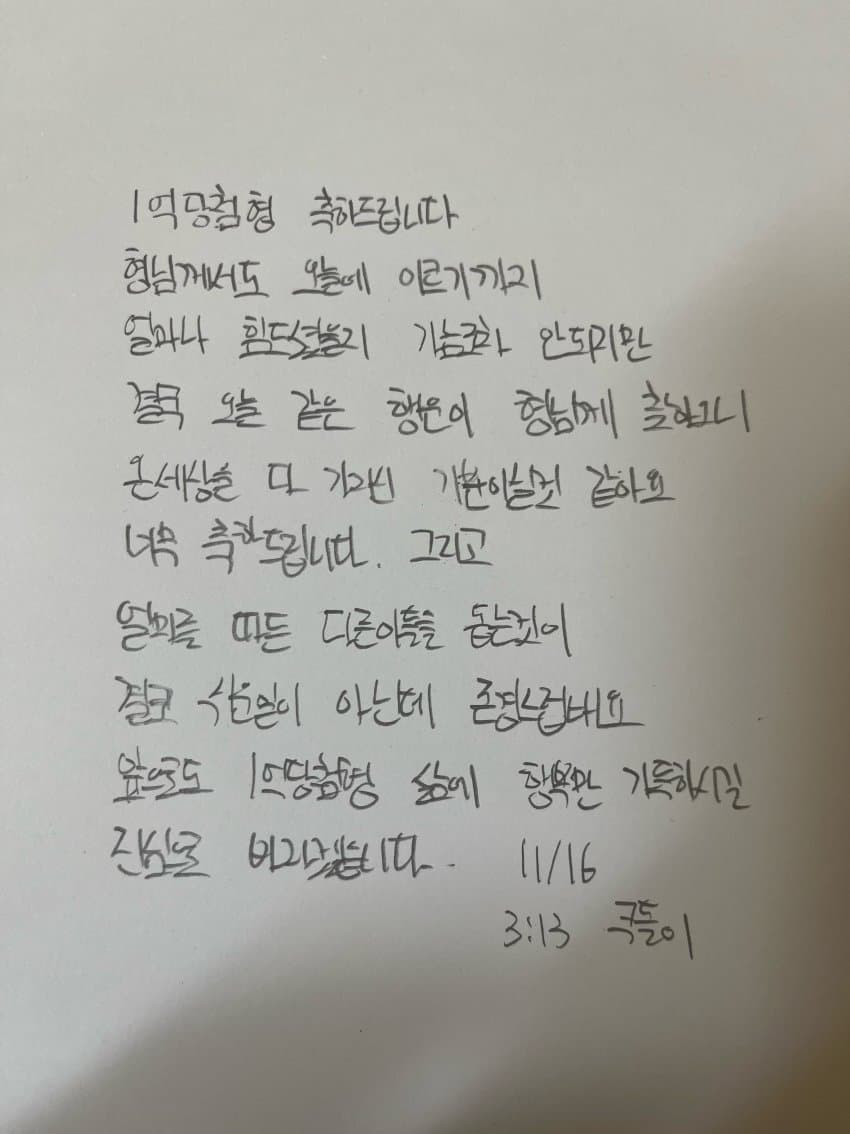 1억당첨형 축하드립니다
형님께서도 오늘에 이르기까지
얼마나 힘드셨을지 가늠조차 안되지만
결국 오늘 같은 행운이 형님께 찾아오니
온세상을 다 가지신 기분이실것 같아요
너무 축하드립니다. 그리고
얼마를 따든 다른이들을 돕는것이
결코 쉬운일이 아닌데 존경스럽네요
앞으로도 1억당첨형 삶에 행복만 가득하시길
진심으로 바라겠습니다. 11/16
3:13 국들이